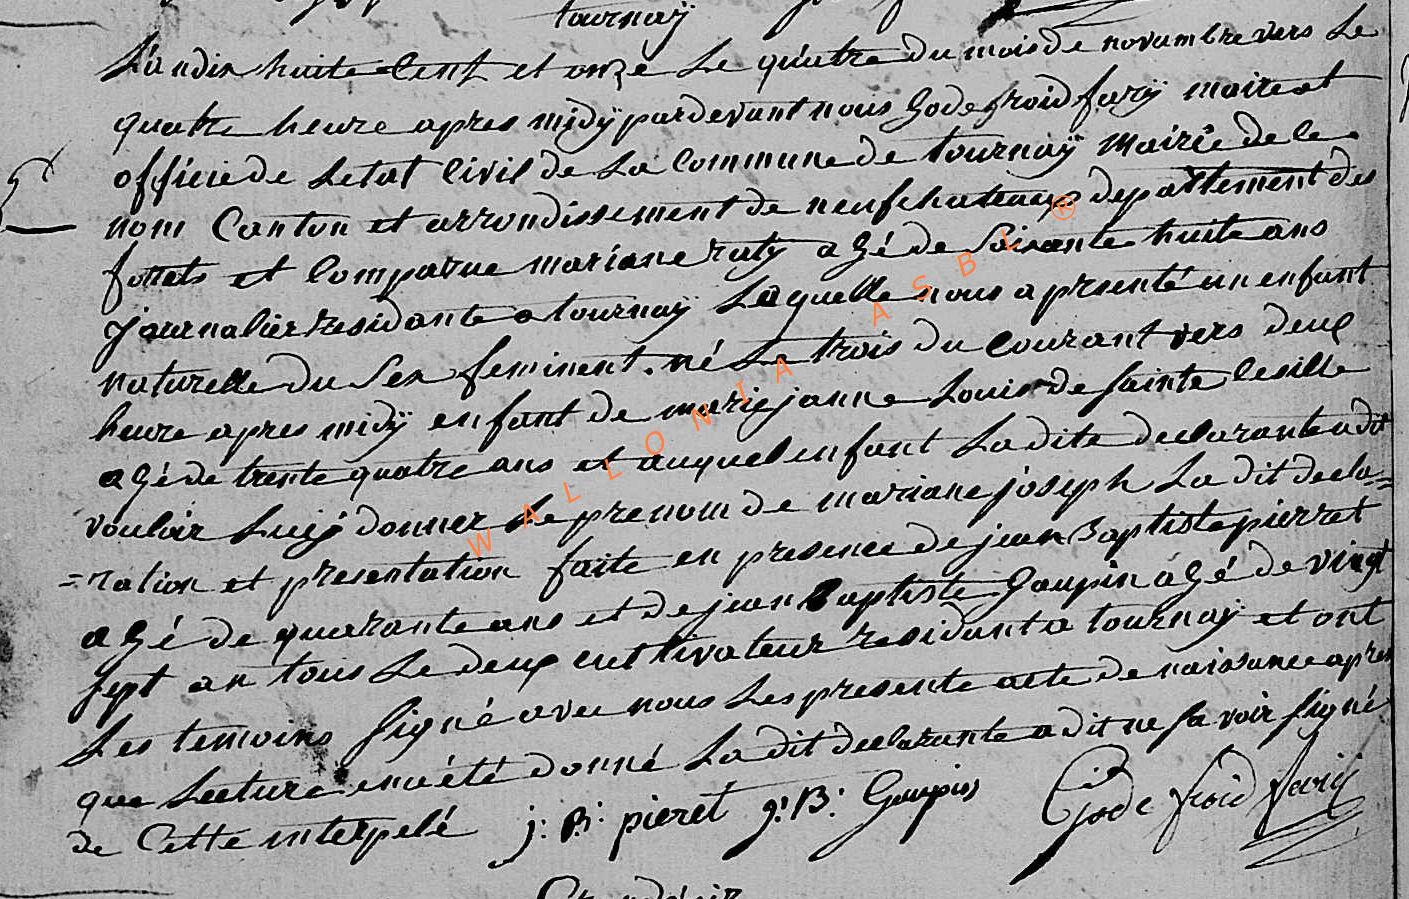 tournaÿ
L'an dix huite Cent et onze Le quatre du mois de novambre vers Le
quatre heure apres midÿ pardevant nous Godefroid farÿ maire et
officie de Letat Civil de La Commune de tournaÿ Mairie de ce
nom Canton et arrondissement de neufchateau departement des
forrets et Comparue mariane raty agé de Soixante huite ans
journalier residante a tournaÿ Laquelle nous a presenté un enfant
naturelle du Sex feminent. né Le trois du Courant vers deux
heure apres midÿ enfant de marie janne Louis de Sainte Cesille
agé de trente quatre ans et auquel enfant La dite declarante a dit
vouloir Luÿ donner Le prenom de mariane joseph La dit decla=
=ration et presentation faite en presence de jean Baptiste pierret
agé de quarante ans et de jean Baptiste Goupin agé de vingt
sept an tous Le deux cultivateur residant a tournaÿ et ont
Les temoins Signé avec nous Les presente acte de naissance apres
que Lecture en été donné La dit declarante a dit ne Savoir Signé
de Cette interpelé j: B: pieret j: B: Goupin Gode froid farÿ
WALLONIA ASBL ®